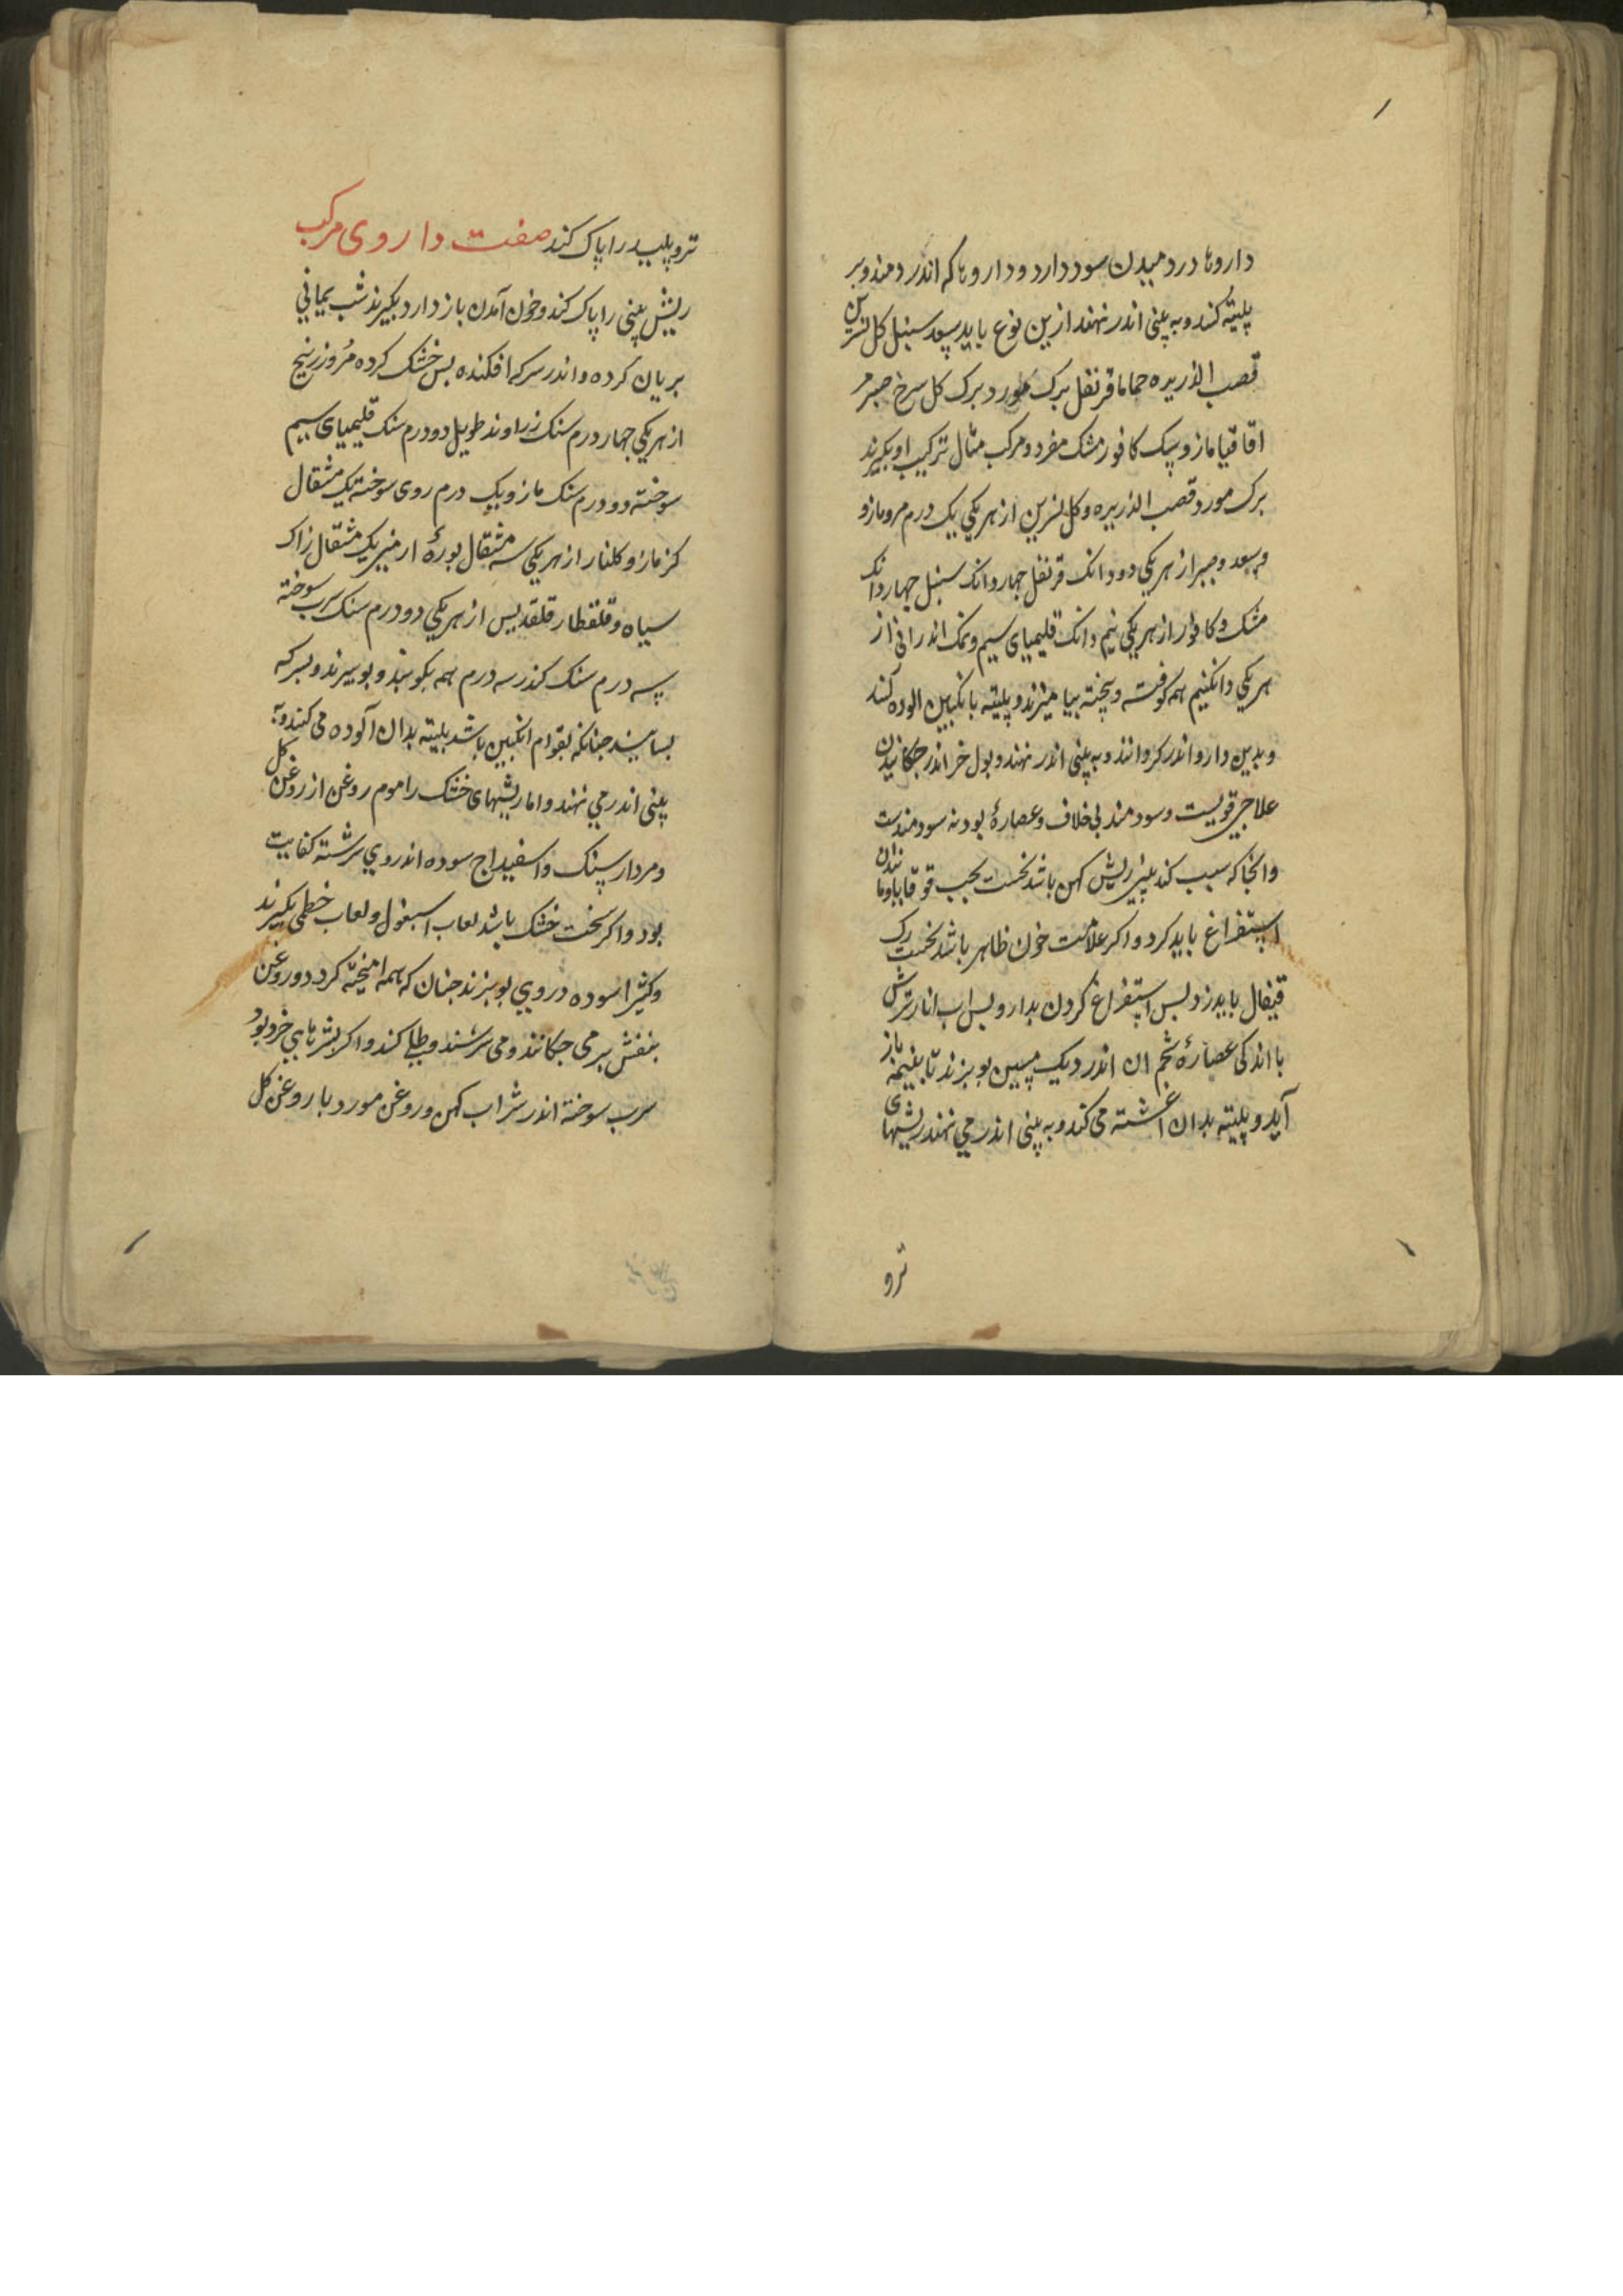 داروها دردمیدن سود دارد و داروها که اندر دمند و بر
پلیته کنند و به بینی اندر نهند ازین نوع باید سعد سنبل کل نسرین
قصب الذریره حماما قرنفل برک مورد برک کل سرخ صبر مر
اقاقیا مازو سک کافور مشک مفرد و مرکب مثال ترکیب او بکیرند
برک مورد قصب الذریره و کل نسرین از هر یکی یک درم مر و مازو
و سعد و صبر از هر یکی دو دانک قرنفل چهار دانک سنبل چهار دانک
مشک و کافور از هر یکی نیم دانک قلیمیای سیم و نمک اندرانی از
هر یکی دانکنیم همه کوفته و بیخته بیامیزند و پلیته بانکبین الوده کنند
و بدین دارو اندر کردانند و به بینی اندر نهند و بول خر اندر جکانیدن
علاجی قویست و سودمند بی خلاف و عصارهٔ بودنه سودمندست
و انجا که سبب کند بینی ریش کهن باشد نخست بحب قوقایا و مانند ان
استفراغ باید کرد و اکر علامت خون ظاهر باشد نخست رک
قیفال باید زد بس استفراغ کردن بدارو بس اب انار ترش
با اندکی عصارهٔ شحم ان اندر دیک مسین بوبزند تا بنیمه باز
آید و پلیته بدان اغشته می کند و به بینی اندر می نهند ریشهای
ترو
تر و پلید را پاک کند صفت داروی مرکب
ریش بینی را پاک کند و خون آمدن باز دارد بکیرند شب یمانی
بریان کرده و اندر سرکه افکنده بس خشک کرده مُر و زرنیخ
از هر یکی جهار درم سنک زراوند طویل دو درم سنک قلیمیای سیم
سوخته دو درم سنک مازو یک درم روی سوخته یک مثقال
کزمازو و کلنار از هر یکی سه مثقال بورهٔ ارمنی یک مثقال زاک
سیاه و قلقطار قلقدیس از هر یکی دو درم سنک سرب سوخته
سه درم سنک کندر سه درم همه بکوبند و بوبیزند و بسرکه
بسایند جنانکه بقوام انکبین باشد بلیته بدان آلوده می کنند و به
بینی اندر می نهند و اما ریشهای خشک را موم روغن از روغن کل
و مردارسنک و اسفیداج سوده اندر وی سرشته کفایت
بود و اکر سخت خشک باشد لعاب اسبغول و لعاب خطمی بکیرند
و کثیرا سوده در وی بوبزند جنان که همه امیخته کردد و روغن
بنفش بر می جکانند و می سرشند و طلا کند و اکر بشرهایی خرد بود
سرب سوخته اندر شراب کهن و روغن مورد با روغن کل